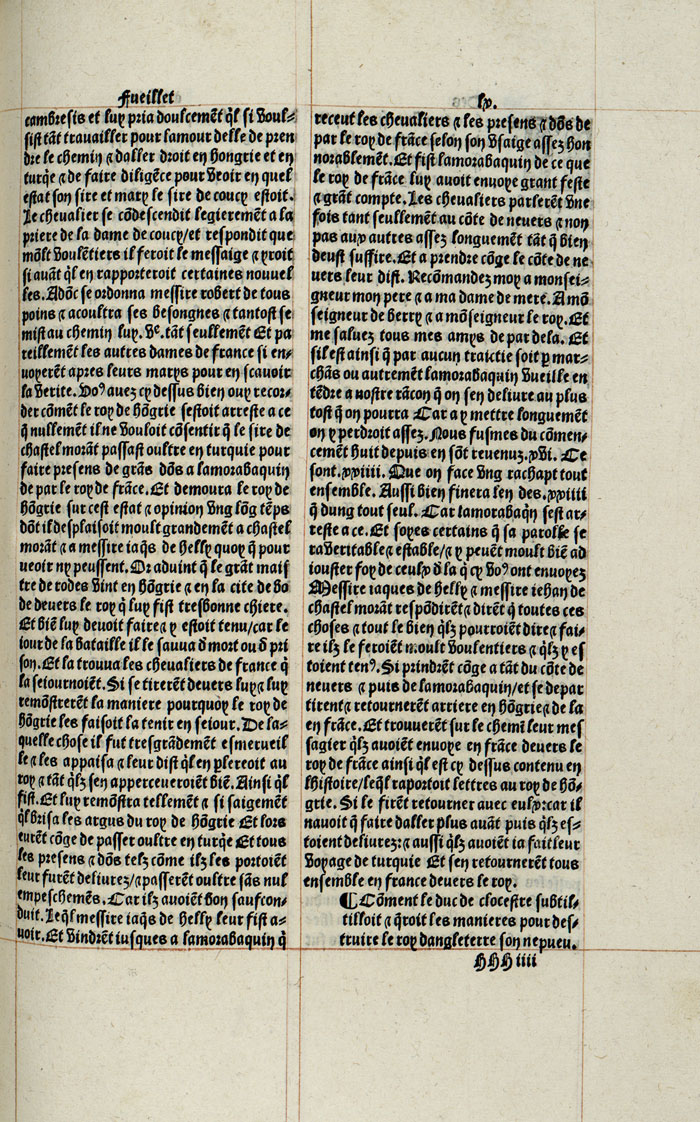 Fueillet
cambresis et luy pria doulcemēt q̄l si voul⸗
sist tāt travailler pour lamour delle de pren
dre le chemin ⁊ daller droit en hongrie et en
turq̄e ⁊ de faire diligēce pour veoir en quel
estat son sire et mary le sire de coucy estoit.
Le chevalier se cōdescendit legieremēt a la
priere de la dame de coucy/et respondit que
mōlt voulētiers il feroit le messaige ⁊ yroit
si avāt q̄l en rapporteroit certaines nouuel
les. Adōc se ordonna messire robert de tous
poins ⁊ acoultra ses besongnes ⁊ tantost se
mist au chemin luy. ve. tāt seullemēt Et pa
reillemēt les autres dames de france si en⸗
uoyerēt apres leurs marys pour en scauoir
la verite. Vo⁹ auez cy dessus bien ouy recor⸗
der cōmēt le roy de hōgrie sestoit arreste a ce
q̄ nullemēt il ne vouloit cōsentir q̄ le sire de
chastel morāt passast oultre en turquie pour
faire presens de grās dōs a lamorabaquin
de par le roy de frāce. Et demoura le roy de
hōgrie sur cest estat ⁊ opinion vng lōg tēps
dōt il desplaisoit moult grandemēt a chastel
morāt ⁊ a messire iaq̄s de helly quoy q̄ pour
ueoir ny peussent. Or aduint q̄ le grāt mais
tre de rodes vint en hōgrie ⁊ en la cite de bo
de deuers le roy q̄ luy fist tresbonne chiere.
Et biē luy deuoit faire ⁊ y estoit tenu/car le
iour de la bataille il le sauua d̄ mort ou d̄ pri
son. Et la trouua les chevaliers de france q̄
la seiournoiēt. Si se tirerēt deuers luy ⁊ luy
remōstrerēt la maniere pourquoy le roy de
hōgrie les faisoit la tenir en seiour. De la⸗
quelle chose il fut tresgrādemēt esmerueil
le ⁊ les appaisa ⁊ leur dist q̄l en p̲lereoit au
roy ⁊ tāt q̄lz sen apperceueroiēt biē. Ainsi q̄l
fist. Et luy remōstra tellemēt ⁊ si saigemēt
q̄l brisa les argus du roy de hōgrie Et lors
eurēt cōge de passer oultre en turq̄e Et tous
les presens ⁊ dōs telz cōme ilz les portoiēt
leur furēt deliurez/⁊ passerēt oultre sās nul
empeschemēs. Car ilz auoiēt bon saufcon⸗
duit. Leq̄l messire iaq̄s de helly leur fist a⸗
uoir. Et vindrēt iusques a lamorabaquin q̄
lx.
receut les chevaliers ⁊ les presens ⁊ dōs de
par le roy de frāce selon son vsaige assez hon
norablemēt. Et fist lamorabaquin de ce que
le roy de frāce luy auoit enuoye grant feste
⁊ grāt compte. Les chevaliers parlerēt vne
fois tant seullemēt au cōte de neuers ⁊ non
pas aux autres assez longuemēt tāt q̄ bien
deust suffire. Et a prendre cōge le cōte de ne
uers leur dist. Recōmandez moy a monsei⸗
gneur mon pere ⁊ a ma dame de mere. A mō
seigneur de berry ⁊ a mōseigneur le roy. Et
me saluez tous mes amys de par dela. Et
sil est ainsi q̄ par aucun traictie soit p̲ mar⸗
chās ou autremēt lamorabaquin vueille en
tēdre a nostre rācon q̄ on sen deliure au plus
tost q̄ on pourra Car a y mettre longuemēt
on y perdroit assez. Nous fusmes du cōmen⸗
cemēt huit depuis en sōt reuenuz. xvi. Ce
sont. xxiiii. Que on face vng rachapt tout
ensemble. Aussi bien finera len des. xxiiii
q̄ dung tout seul. Car lamorabaq̄n sest ar⸗
reste a ce. Et soyes certains q̄ sa parolle se
ra veritable ⁊ estable/⁊ y peuēt moult biē ad
iouster foy de ceulx d̄ la q̄ cy vo⁹ ont enuoyez
Messire iaques de helly ⁊ messire iehan de
chastel morāt respōdirēt ⁊ dirēt q̄ toutes ces
choses ⁊ tout le bien q̄lz pourroiēt dire ⁊ fai⸗
re ilz le feroiēt moult voulentiers ⁊ q̄lz y es
toient ten⁹. Si prindrēt cōge a tāt du cōte de
neuers ⁊ puis de lamorabaquin/et se depar
tirent ⁊ retournerēt arriere en hōgrie ⁊ de la
en frāce. Et trouuerēt sur le chemī leur mes
sagier q̄lz auoiēt enuoye en frāce deuers le
roy de frāce ainsi q̄l est cy dessus contenu en
lhistoire/leq̄l raportoit lettres au roy de hō⸗
grie. Si le firēt retourner auec eulx:car il
nauoit q̄ faire daller plus auāt puis q̄lz es⸗
toient deliurez:⁊ aussi q̄lz auoiēt ia fait leur
voyage de turquie Et sen retournerēt tous
ensemble en france deuers le roy.
¶ Cōment le duc de clocestre subtil⸗
tilloit ⁊ q̄roit les manieres pour des⸗
truire le roy dangleterre son nepueu.
HHH iiii